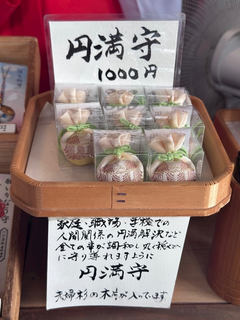 円満守
1000円
家庭・職場・学校での
人間関係の円満解決など
全ての事が調和し丸く穏やか
に守られますように
円満守
夫婦杉の木片が入っています